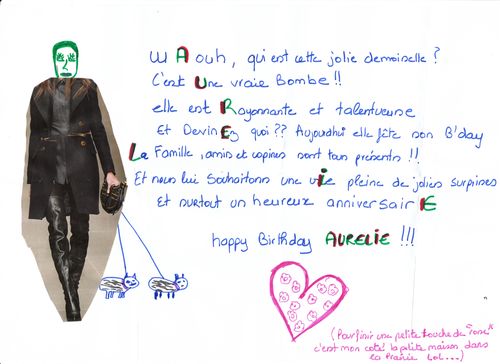 WAouh, qui est cette jolie demoiselle ?
C'est Une vraie Bombe !!
elle est Rayonnante et talentueuse
Et DevinEz quoi ?? Aujourdhui elle fête son B'day
La Famille, amis et copines sont tous présents !!
Et nous lui souhaitons une vie pleine de jolies surprises
Et surtout un heureux anniversairE
happy Birthday AURELIE !!!
(Pour finir une petite touche de "rose"
c'est mon coté la petite maison dans
la Prairie lol...)